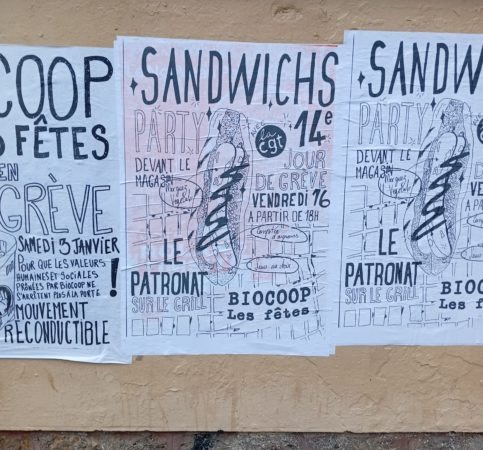 COOP
FÊTES
EN
GRÈVE
SAMEDI 3 JANVIER
POUR QUE LES VALEURS
HUMAINES ET SOCIALES
PRÔNÉES PAR BIOCOOP NE
S'ARRÊTENT PAS À LA PORTE
!
MOUVEMENT
RECONDUCTIBLE
SANDWICHS
PARTY
DEVANT LE
MAGASIN
la
cgt
14e
JOUR
DE GRÈVE
VENDREDI 16
A PARTIR DE 18H
LE
PATRONAT
SUR LE GRILL
BIOCOOP
Les fêtes
SANDWI
PARTY
DEVANT LE
MAGASIN
LE
PATRONAT
SUR LE GRILL
BIOCO
Les fê